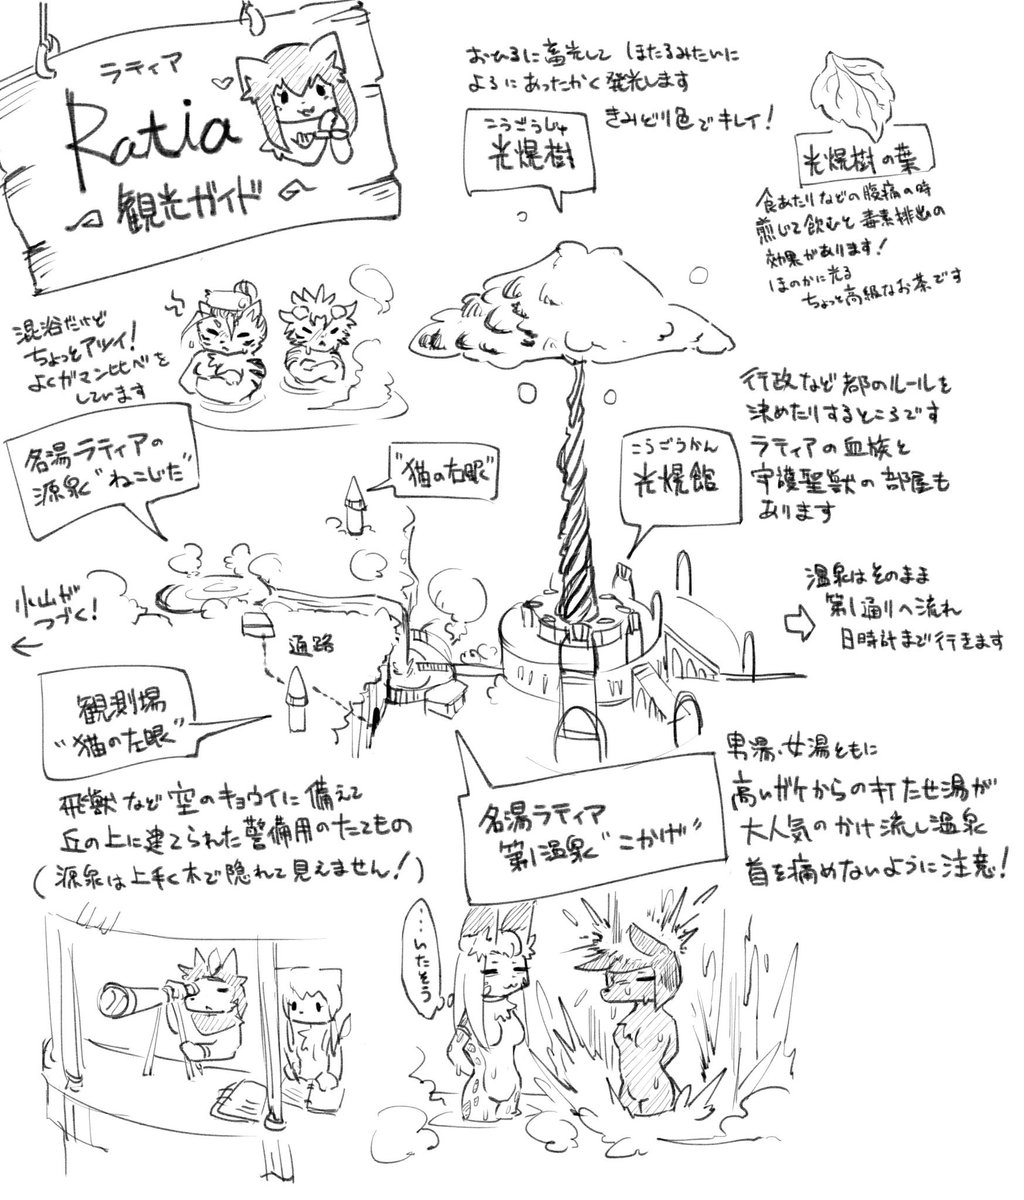 ラティア
Ratia
観光ガイド
おひるに畜光して ほたるみたいに
よるにあったかく発光します
きみどり色でキレイ!
こうごうじゅ
光煌樹
光煌樹の葉
食あたりなどの腹痛の時
煎じて飲むと毒素排出の
効果があります!
ほのかに光る
ちょっと高級なお茶です
混浴だけど
ちょっとアツイ!
よくガマン比べを
しています
名湯ラティアの
源泉"ねこじた"
"猫の右眼"
こうごうかん
光煌館
行政など都のルールを
決めたりするところです
ラティアの血族と
守護聖獣の部屋も
あります
小山が
つづく!
通路
温泉はそのまま
第1通りへ流れ
日時計まで行きます
観測場
"猫の左眼"
飛獣など空のキョウイに備えて
丘の上に建てられた警備用のたてもの
(源泉は上手く木で隠れて見えません!)
名湯ラティア
第1温泉"こかげ"
男湯・女湯ともに
高いガケからの打たせ湯が
大人気のかけ流し温泉
首を痛めないように注意!
…いたそう